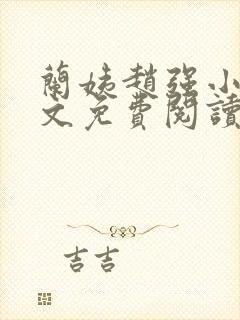 蘭姨趙強小
文免費閱讀
吉吉